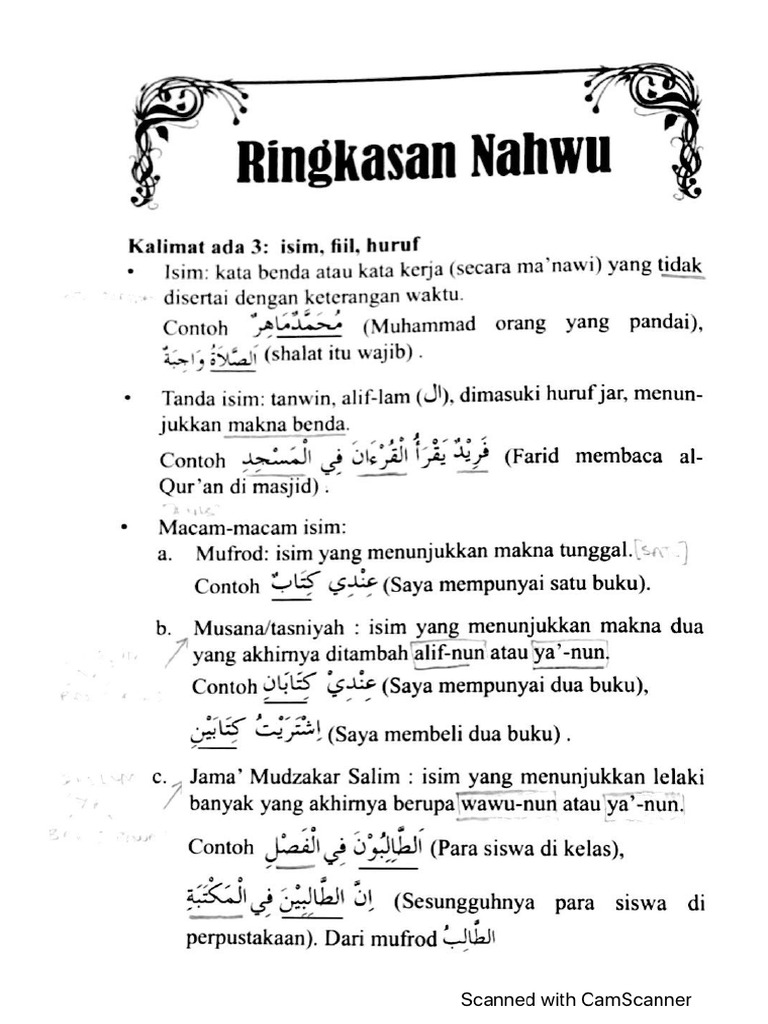 Ringkasan Nahwu
Kalimat ada 3: isim, fiil, huruf
• Isim: kata benda atau kata kerja (secara ma'nawi) yang tidak
disertai dengan keterangan waktu.
Contoh مُحَمَّدٌمَاهِرٌ (Muhammad orang yang pandai),
اَلصَّلَاةُ وَاجِبَةٌ (shalat itu wajib) .
• Tanda isim: tanwin, alif-lam (ال), dimasuki huruf jar, menun-
jukkan makna benda.
Contoh فَرِيْدٌ يَقْرَأُ الْقُرْءَانَ فِي الْمَسْجِدِ (Farid membaca al-
Qur'an di masjid) .
• Macam-macam isim:
a. Mufrod: isim yang menunjukkan makna tunggal.
Contoh عِنْدِي كِتَابٌ (Saya mempunyai satu buku).
b. Musana/tasniyah : isim yang menunjukkan makna dua
yang akhirnya ditambah alif-nun atau ya'-nun.
Contoh عِنْدِيْ كِتَابَانِ (Saya mempunyai dua buku),
اِشْتَرَيْتُ كِتَابَيْنِ (Saya membeli dua buku) .
c. Jama' Mudzakar Salim : isim yang menunjukkan lelaki
banyak yang akhirnya berupa wawu-nun atau ya'-nun.
Contoh اَلطَّالِبُوْنَ فِي الْفَصْلِ (Para siswa di kelas),
اِنَّ الطَّالِبِيْنَ فِي الْمَكْتَبَةِ (Sesungguhnya para siswa di
perpustakaan). Dari mufrod الطَّالِبُ
Scanned with CamScanner